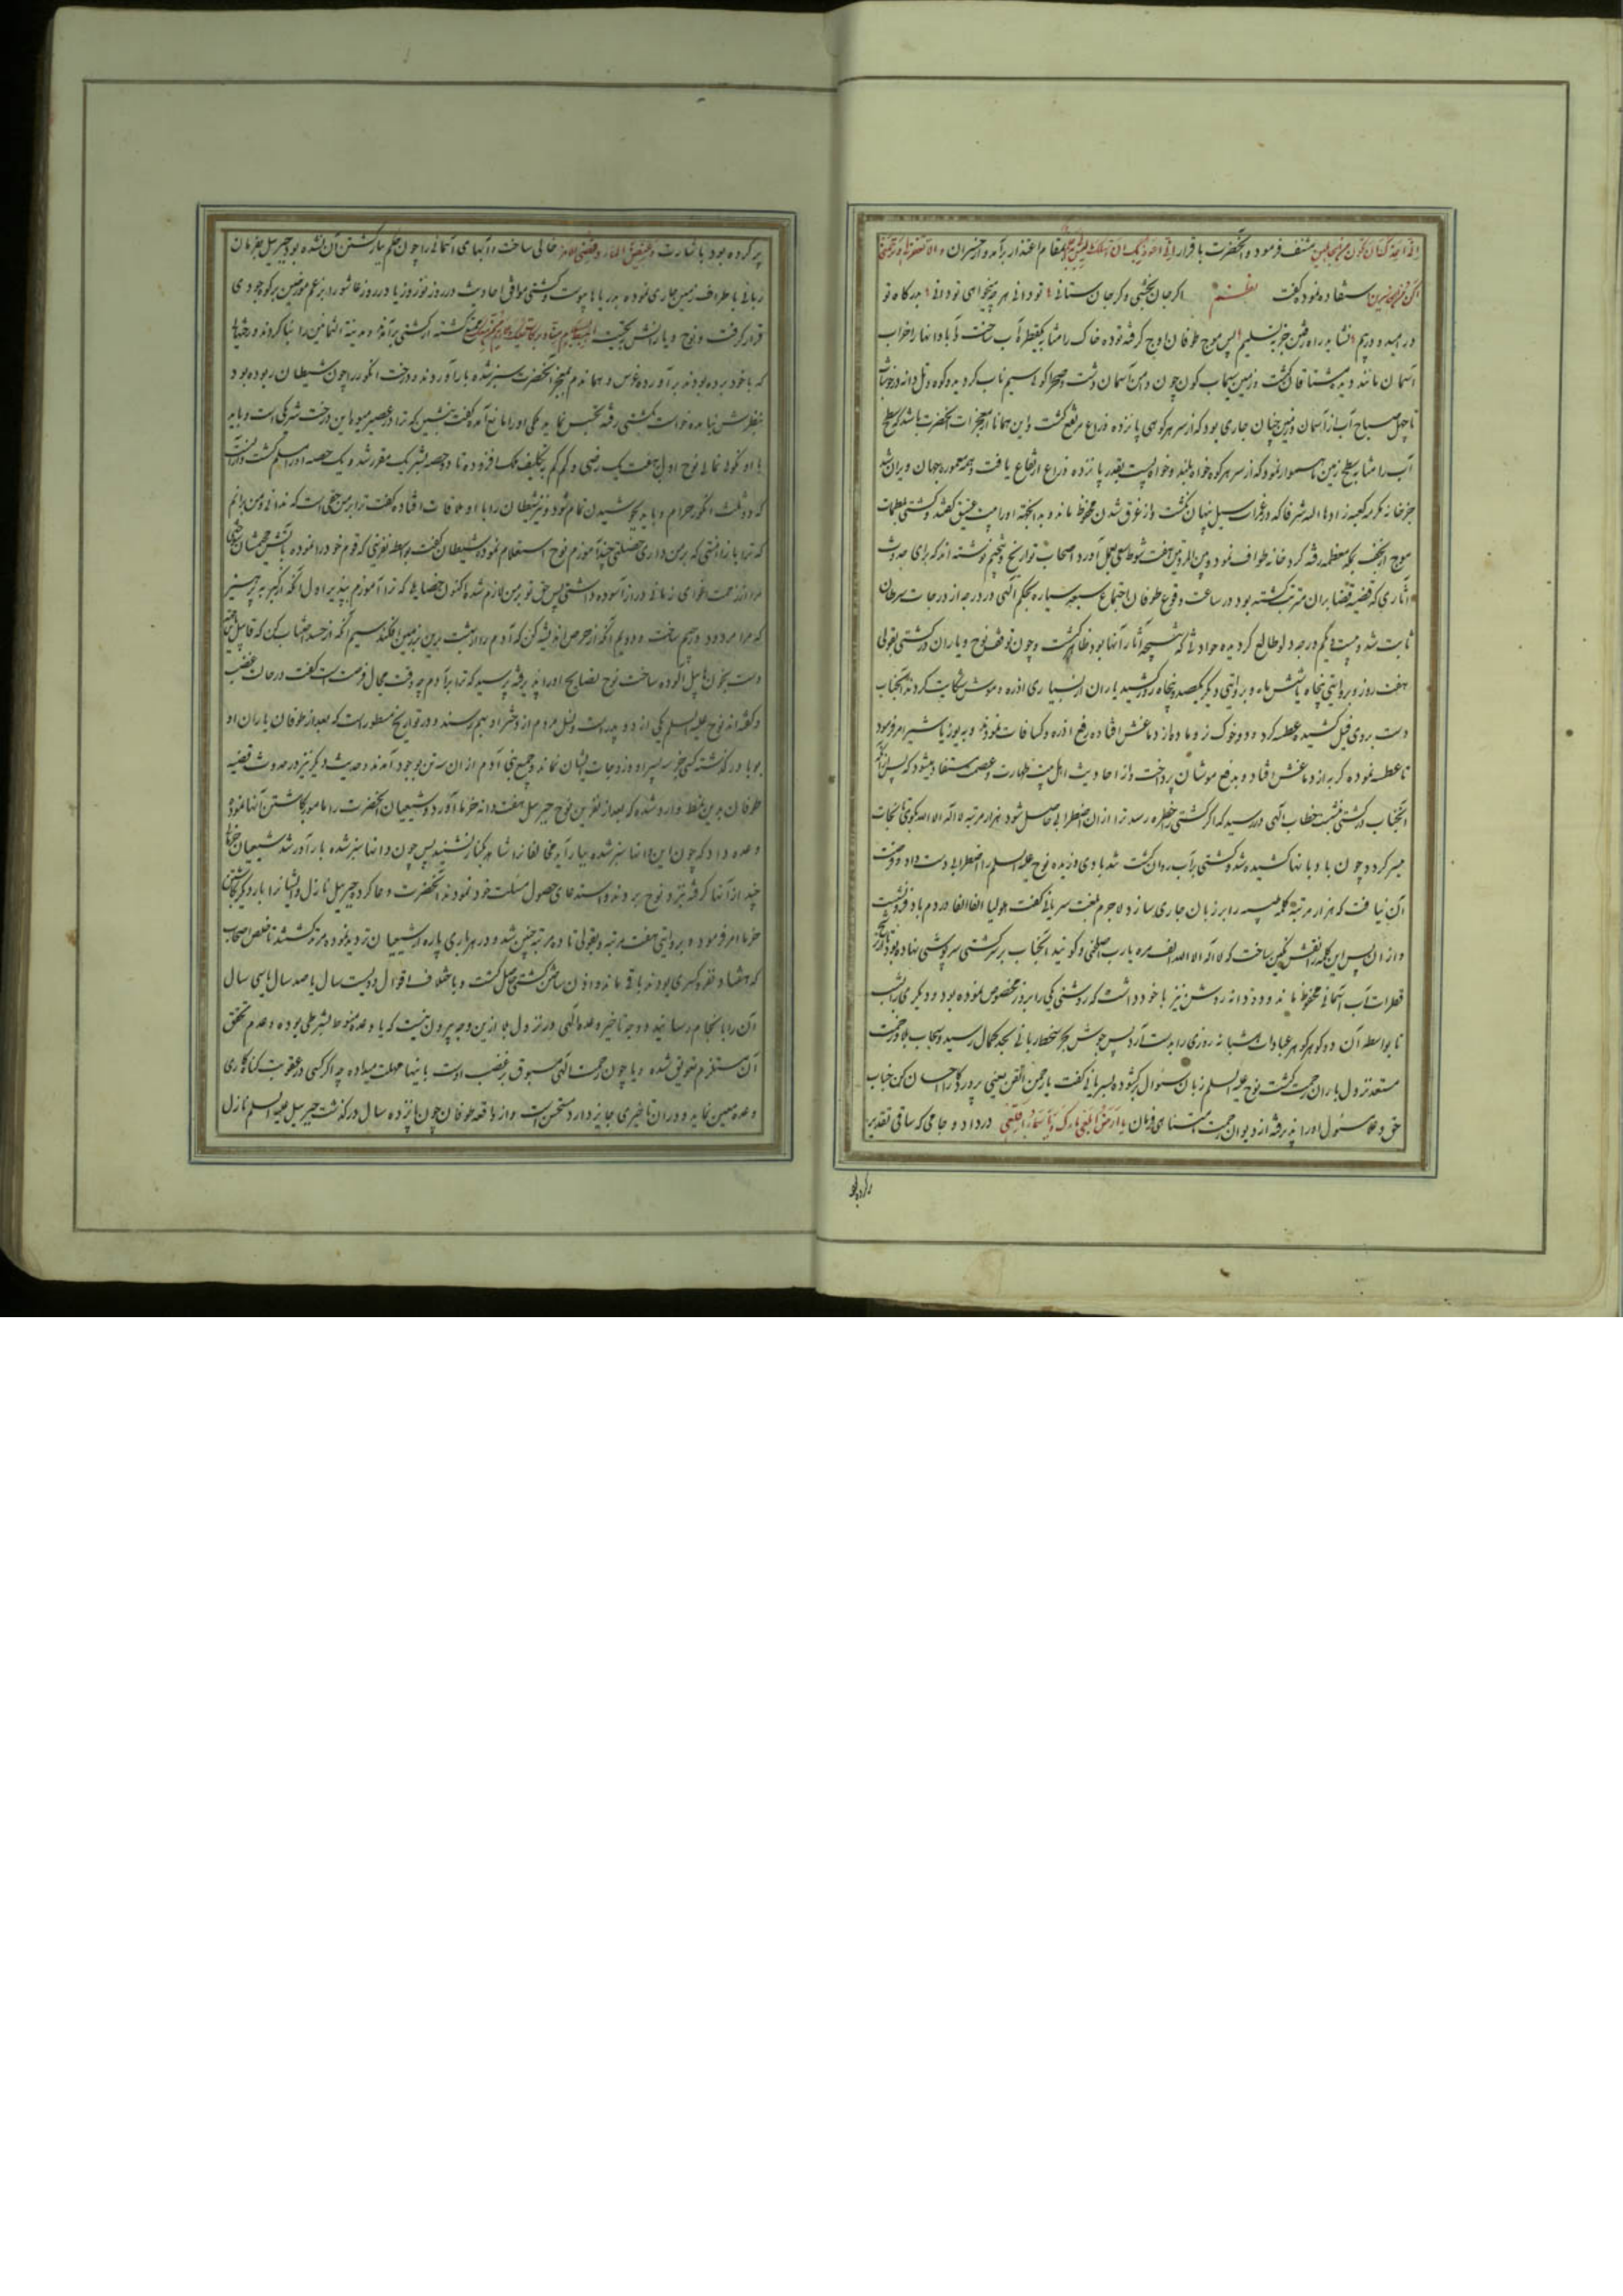 انی اعظک ان تکون من الجاهلین مشنف فرمود و آنحضرت باقرار انی اعوذ بک ان اسئلک ما لیس لی به علم بمقام اعتذار برآمده از خسران و الا تغفر لی و ترحمنی
اکن من الخاسرین استفاده نمود و گفت نظم اگر جان بخشی و گر جان ستانی تو دانی هر چه خواهی تو دانی بدرگاه تو
در امید و بیم نشاید راه رفتن جز بتسلیم پس موج طوفان اوج گرفته توده خاک را مشابه یکقطره آب ساخت آبادانیها را خراب
آسمان مانند دیده مشتاقان گشت و زمین سیماب گون چون دامن آسمان و دشت و صحرا کوه سیم ناب گردیده و کوه و تل
تا چهل صباح آب از آسمان و زمین چنان جاری بود که از سر هر کوهی پانزده ذراع مرتفع گشت و این همانا از معجزات آنحضرت باشد که سطح
آب را مشابه سطح زمین ناهموار نمود که از سر هر کوه خواه بلند و خواه پست بقدر پانزده ذراع ارتفاع یافت و همه معموره جهان ویران شد
جز خانه مکرمه کعبه زادها الله شرفا که در غمرات سیل پنهان نگشت و از غرق شدن محفوظ ماند و بدانجهة او را بیت عتیق گفتند و کشتی بلطمات
موج از نجف بمکه معظمه رفته گرد خانه طواف نمود و بین هفت شوط سعی بعمل آورد و اصحاب تواریخ و تنجیم نوشته اند که برای حدوث
آثاری که قضیه قضا بران مترتب گشته بود در ساعت وقوع طوفان اجتماع سبعه سیاره بحکم الهی در درجه از درجات سرطان
ثابت شد و بیست و یکم درجه دلو طالع گردیده حوادثی که نتیجه آثار آنها بود ظاهر گشت و چون توقف نوح و یاران در کشتی بقولی
هفت روز و بروایتی پنجاه یا شش ماه و بروایتی دیگر یکصد و پنجاه روز کشید یاران از بسیاری اذره و موش شکایت کردند آنجناب
دست بروی فیل کشیده عطسه کرد و دو خوک نر و ماده از دماغش افتاده رفع اذره و کثافات نمودند و به یوز یا شیر امر فرمود
تا عطسه نموده گربه از دماغش افتاد و بدفع موشان پرداخت و از احادیث اهل بیت طهارت و عصمت مستفاد میشود که
آنجناب در کشتی نشست خطاب الهی در رسید که اگر کشتی را خطره رسد ترا از آن اضطرابی حاصل شود هزار مرتبه لا اله الا الله بگوی تا نجات
میسر گردد چون بادبانها کشیده شد و کشتی بر آب روان گشت تندبادی وزیده نوح علیه السلم را اضطرابی دست داده و فرصت
آن نیافت که هزار مرتبه کلمه طیبه را بر زبان جاری سازد لاجرم بلغت سریانی گفت هولیا الفا الفا در دم باد فرو نشست
و از آن پس این کلمه را نقش نگین ساخت که لا اله الا الله الف مره یا رب اصلحنی و گویند آنجناب بر کشتی سرپوشی نهاده بود تا از
قطرات آب آسمانی محفوظ ماند و دو دانه روشن نیز با خود داشت که روشنی یکی را بروز مخصوص نموده بود و دیگری را بشب
تا بواسطه آن دو گوهر گوهر عبادات شبانه روزی را بدست آرد پس جوش بحر سخط ربانی بحد کمال رسید و سحاب بلا و زحمت
مستعد نزول باران رحمت گشت نوح علیه السلم زبان سئوال برگشوده بسریانی گفت یا رحمن اتقن یعنی پروردگارا احسان کن جناب
حق دعا و مسئول او را پذیرفته از دیوان رحمت فرمان یا ارض ابلعی مائک و یا سماء اقلعی در داد و جامی که ساقی تقدیر
پر کرده بود
پر کرده بود باشارت و غیض الماء و قضی الامر خالی ساخت و آبهای آسمانی را چون حکم بازگشتن آن نشده بود جبرئیل بفرمان
ربانی باطراف زمین جاری نموده بدریاها پیوست و کشتی موافق احادیث در روز نوروز یا در روز عاشورا بزعم مورخین بر کوه جودی
قرار گرفت و نوح و یارانش بتحیت اهبط بسلام منا و برکات علیک و علی امم ممن معک گشته از کشتی برآمدند و مدینة الثمانین را بنا کردند و درختها
که با خود برده بودند برآورده غرس و همان دم بمعجز آنحضرت سبز شده بار آوردند و درخت انگور را چون شیطان ربوده بود
بنظرش نیامد خواست بکشتی رفته تجسس نماید ملکی او را مانع آمده گفت بنشین که ترا در عصیر میوه این درخت شریکی است و باید
با او نکوئی نمائی نوح اول بهفت یک راضی و کم کم بتکلیف ملک افزوده تا دو حصه بشریک مقرر شد و یک حصه او را مسلم گشت و از آنست
که دو ثلث انگور حرام و باید بجوشیدن تمام شود و نیز شیطان را با او ملاقات افتاده گفت ترا بر من حقی است که ندانی و من دانم
که ترا باز داشتی که بر من داری خصلتی چند آموزم نوح استعلام نمود شیطان گفت بواسطه نفرینی که قوم خود را نموده بآتش
مرا از زحمت اغوای زمانی دراز آسوده داشتی پس حق تو بر من لازم شد اکنون خصایلی که ترا آموزم بپذیر اول آنکه از کبر بپرهیز
که مرا مردود و رجیم ساخت و دویم آنکه از حرص اندیشه کن که آدم را از بهشت برین بزمین افکند سیم آنکه از حسد اجتناب کن که قابیل را
دست بخون هابیل آلوده ساخت نوح نصایح او را پذیرفته پرسید که ترا بر آدم چه وقت مجال فرصت است گفت در حالت غضب
و گفته اند نوح علیه السلم یکی از دو پدر است و نسل مردم از دختر او بهم رسند و در تواریخ مسطور است که بعد از طوفان یاران او
بوبا درگذشته کسی بجز سه پسر او و زوجات ایشان نماند و جمیع بنی آدم از آن سه تن بوجود آمدند و حدیث دیگر نیز در حدوث قضیه
طوفان بدین نمط وارد شده که بعد از نفرین نوح جبرئیل هفت دانه خرما آورد و شیعیان آنحضرت را مامور بکاشتن آنها نمود و
وعده داد که چون این دانها سبز شده ببار آید مخالفانرا شاهد بکنار نشنید پس چون دانها سبز شده بار آور شد شیعیان خرمائی
چند از آنها گرفته نزد نوح بردند و استدعای حصول مسئلت خود نمودند آنحضرت دعا کرد و جبرئیل نازل و ایشانرا بار دیگر بکاشتن
خرما امر فرمود و بروایتی هفت مرتبه و بقولی تا ده مرتبه چنین شد و در هر باری پاره از شیعیان تردید نموده مرتد گشتند تا خلص اصحاب
که هشتاد نفر و کسری بودند باقی مانده و اذن ساختن کشتی حاصل گشت و باختلاف اقوال دویست سال یا صد سال یا سی سال
آن را بانجام رسانید و وجه تاخیر وعده الهی در نزول بلا ازین وجه بیرون نیست که یا وعده منوط بشرطی بوده و عدم تحقق
آن مستلزم تعویق شده و یا چون رحمت الهی مسبوق بر غضب اوست باینها مهلت میداده چه اگر کسی در عقوبت گناهکاری
وعده معین نماید و در آن تاخیری جایز دارد مستحسن است و از واقعه طوفان چون پانزده سال درگذشت جبرئیل علیه السلم نازل